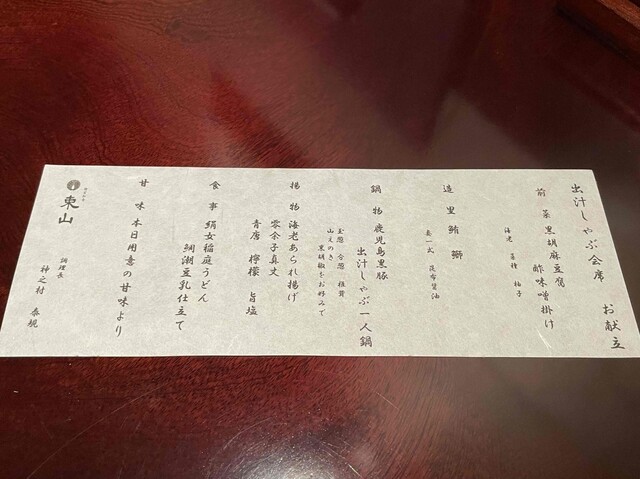 出汁しゃぶ会席 お献立
前菜 黒胡麻豆腐
酢味噌掛け
海老 柚子
造里 鮪 鰤
昆布醤油
鍋物 鹿児島黒豚
出汁しゃぶ一人鍋
玉葱 白葱 椎茸
山えのき
黒胡椒をお好みで
揚物 海老あられ揚げ
零余子真丈
青唐 檸檬 旨塩
食事 絹女稲庭うどん
鯛潮豆乳仕立て
甘味 本日用意の甘味より
東山
調理長
神之村